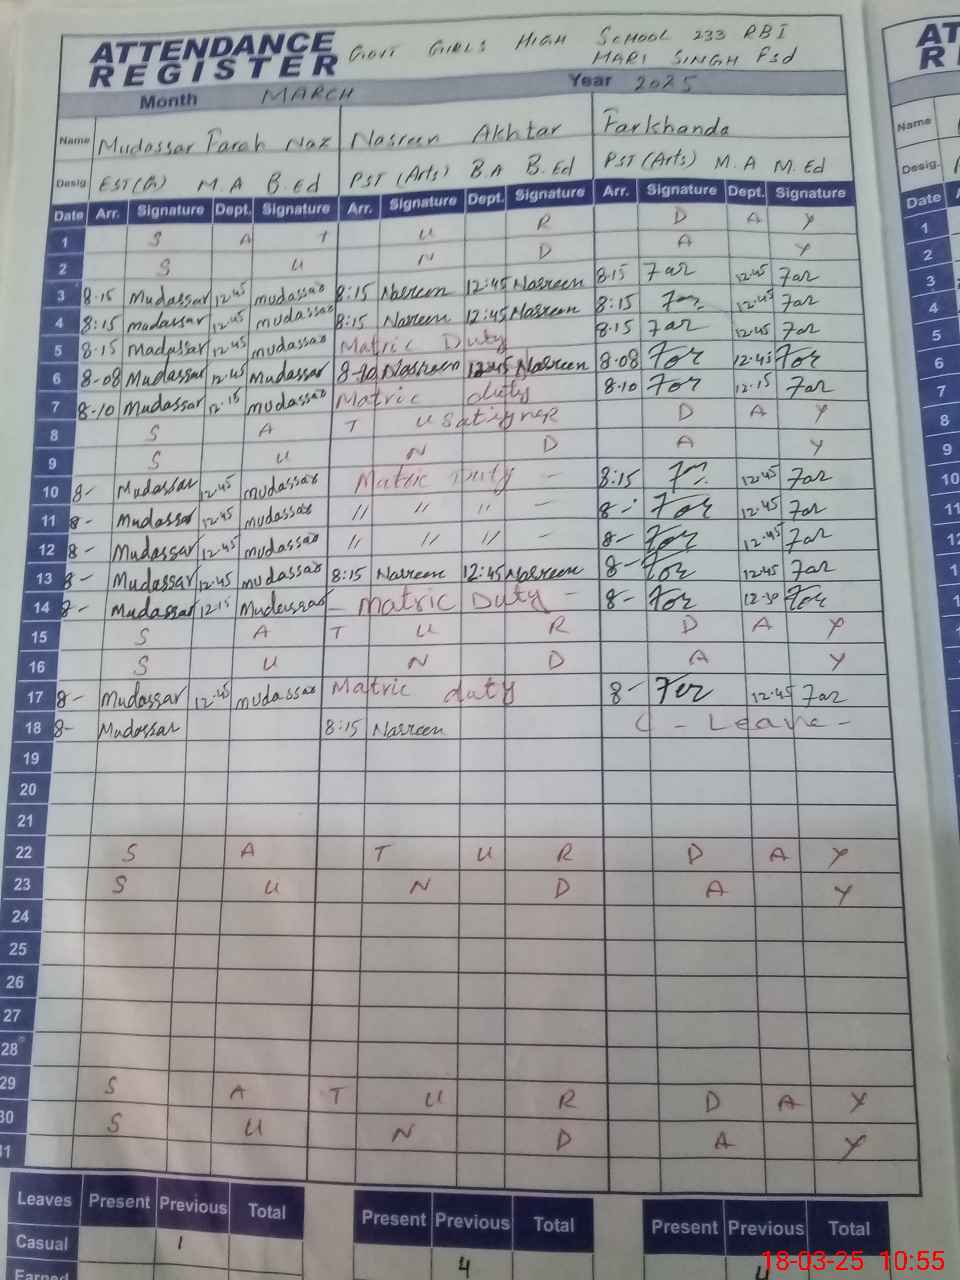 ATTENDANCE REGISTER GOVT GIRLS HIGH SCHOOL 233 RBI
MARI SINGH Fsd
Month MARCH Year 2025
Name Mudassar Farah Naz Nasreen Akhtar Farkhanda
Desig M.A B.Ed PST (Arts) B.A B.Ed PST (Arts) M.A M.Ed
Date Arr. Signature Dept. Signature Arr. Signature Dept. Signature Arr. Signature Dept. Signature
1 S A T U R D A Y
2 S U N D A Y
3 8.15 Mudassar 12.45 mudassar 8:15 Nasreen 12:45 Nasreen 8.15 Far 12.45 Far
4 8:15 mudassar 12.45 mudassar 8:15 Nasreen 12:45 Nasreen 8:15 12.45 Far
5 8.15 Mudassar 12.45 mudassar Matric Duty 8.15 Far 12.45 Far
6 8-08 Mudassar 12.45 Mudassar 8-10 Nasreen 12:45 Nasreen 8-08 Far 12.45 Far
7 8-10 Mudassar 12.15 mudassar Matric duty 8.10 Far 12.15 Far
8 S A T U R D A Y
9 S U N D A Y
10 8- Mudassar 12.45 mudassar Matric Duty - 8:15 12.45 Far
11 8- Mudassar 12.45 mudassar // // // - 8- Far 12.45 Far
12 8- Mudassar 12.45 mudassar // // // - 8- Far 12.45 Far
13 8- Mudassar 12.45 mudassar 8:15 Nasreen 12:45 Nasreen 8- Far 12.45 Far
14 8- Mudassar 12.15 Mudassar - Matric Duty - 8- Far 12.30 Far
15 S A T U R D A Y
16 S U N D A Y
17 8- Mudassar 12.45 mudassar Matric duty 8- Far 12.45 Far
18 8- Mudassar 8:15 Nasreen C - Leave -
19
20
21
22 S A T U R D A Y
23 S U N D A Y
24
25
26
27
28
29 S A T U R D A Y
30 S U N D A Y
31
Leaves Present Previous Total Present Previous Total Present Previous Total
Casual 1 4 4
Earned
18-03-25 10:55
AT
R
Name
Desig.
Date
1
2
3
4
5
6
7
8
9
10
11
12